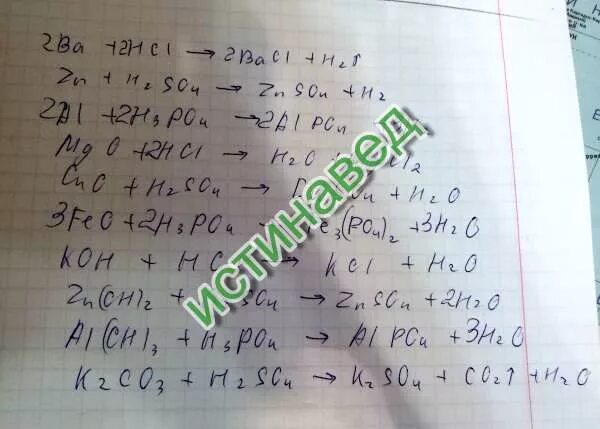 2Ba + 2HCl → 2BaCl + H2↑
Zn + H2SO4 → ZnSO4 + H2
2Al + 2H3PO4 → 2AlPO4
MgO + 2HCl → H2O
CuO + H2SO4 → + H2O
3FeO + 2H3PO4 Fe3(PO4)2 + 3H2O
KOH + HCl → KCl + H2O
Zn(OH)2 + SO4 → ZnSO4 + 2H2O
Al(OH)3 + H3PO4 → AlPO4 + 3H2O
K2CO3 + H2SO4 → K2SO4 + CO2↑ + H2O
истинавед